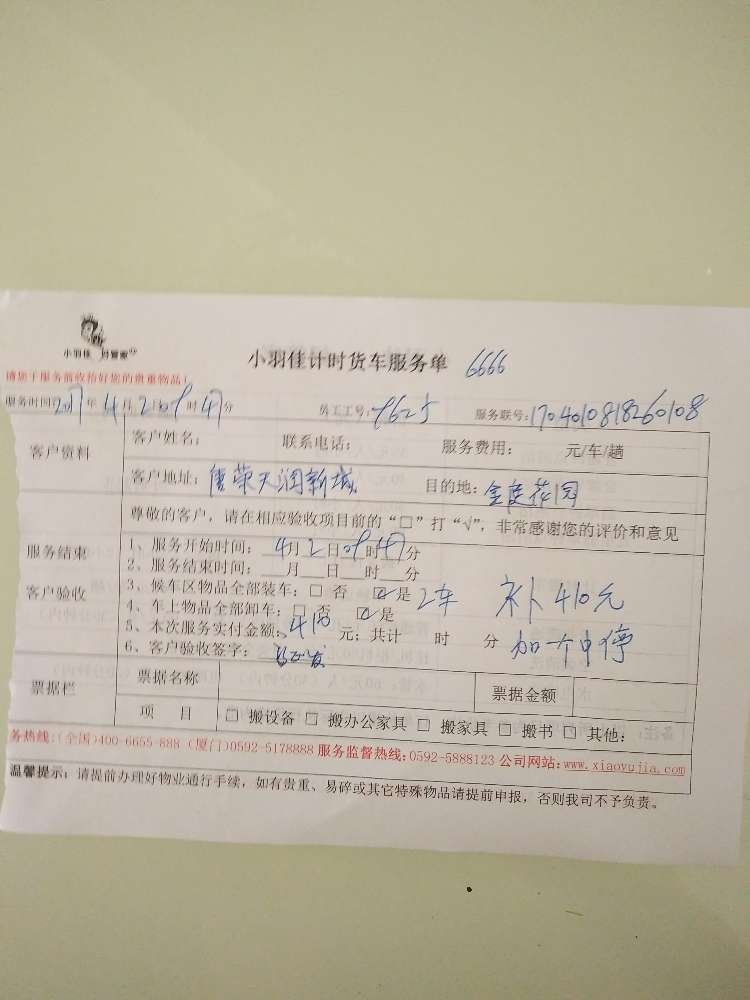 小羽佳 好管家
小羽佳计时货车服务单 6666
请您于服务前收拾好您的贵重物品！
服务时间2017年4月2日09时47分 员工工号：9625 服务联号：170401081826 0108
客户资料 客户姓名： 联系电话： 服务费用： 元/车/趟
客户地址：唐荣天润新城 目的地：金庭花园
尊敬的客户，请在相应验收项目前的“□”打“√”，非常感谢您的评价和意见
服务结束
客户验收
1、服务开始时间：4月2日09时47分
2、服务结束时间：__月__日__时__分
3、候车区物品全部装车：□ 否 ☑是 2车 补410元
4、车上物品全部卸车：□ 否 ☑是
5、本次服务实付金额：410元；共计 时 分 加一个中停
6、客户验收签字：
票据栏 票据名称 票据金额
项 目 □ 搬设备 □ 搬办公家具 □ 搬家具 □ 搬书 □ 其他：
务热线：(全国)400-6655-888 (厦门)0592-5178888 服务监督热线：0592-5888123 公司网站：www.xiaoyujia.com
温馨提示：请提前办理好物业通行手续，如有贵重、易碎或其它特殊物品请提前申报，否则我司不予负责。